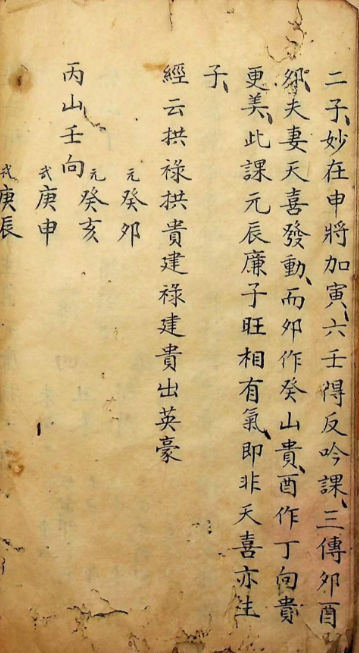 二子、妙在申將加寅、六壬得反吟課、三傳夘酉
夘、夫妻天喜發動、而夘作癸山貴、酉作丁向貴
更美、此課元辰廉子旺相有氣、即非天喜亦生
子、
經云拱祿拱貴建祿建貴出英豪
元癸夘
丙山壬向 元癸亥
弍庚申
弍庚辰